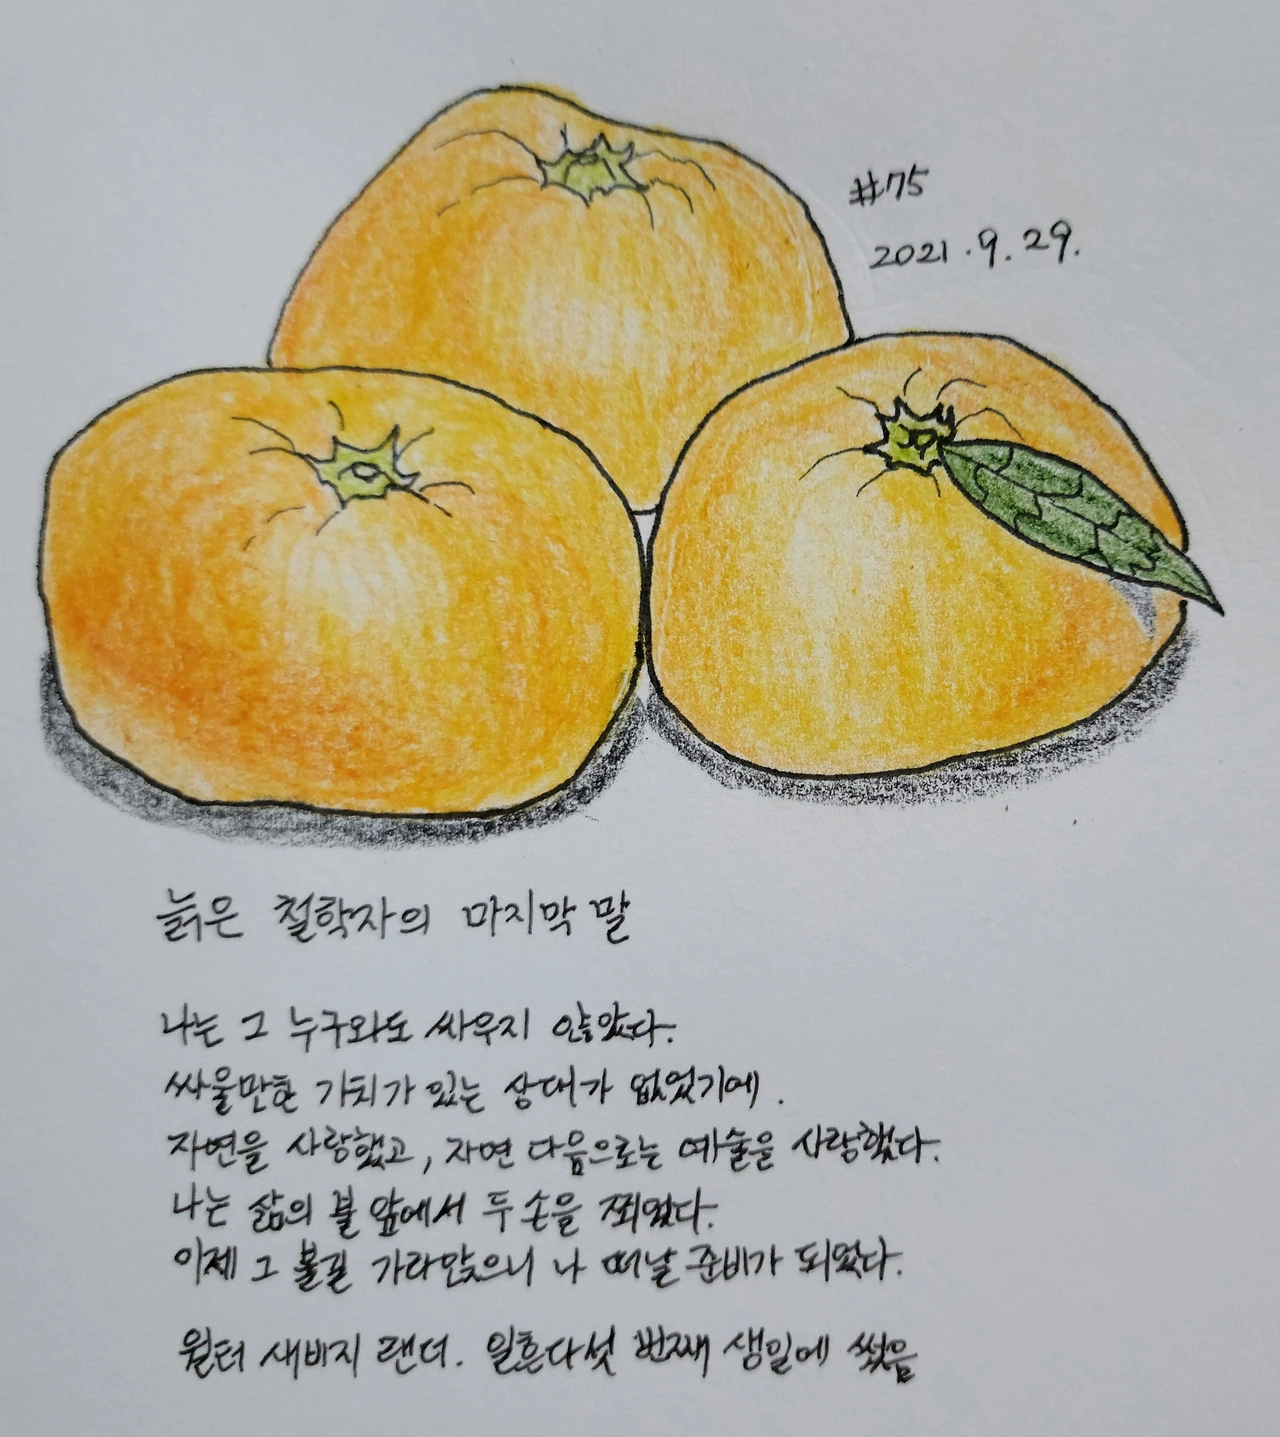 #75
2021.9.29.
늙은 철학자의 마지막 말
나는 그 누구와도 싸우지 않았다.
싸울만한 가치가 있는 상대가 없었기에.
자연을 사랑했고, 자연 다음으로는 예술을 사랑했다.
나는 삶의 불 앞에서 두 손을 쬐였다.
이제 그 불길 가라앉으니 나 떠날 준비가 되었다.
월터 새비지 랜더. 일흔다섯 번째 생일에 썼음